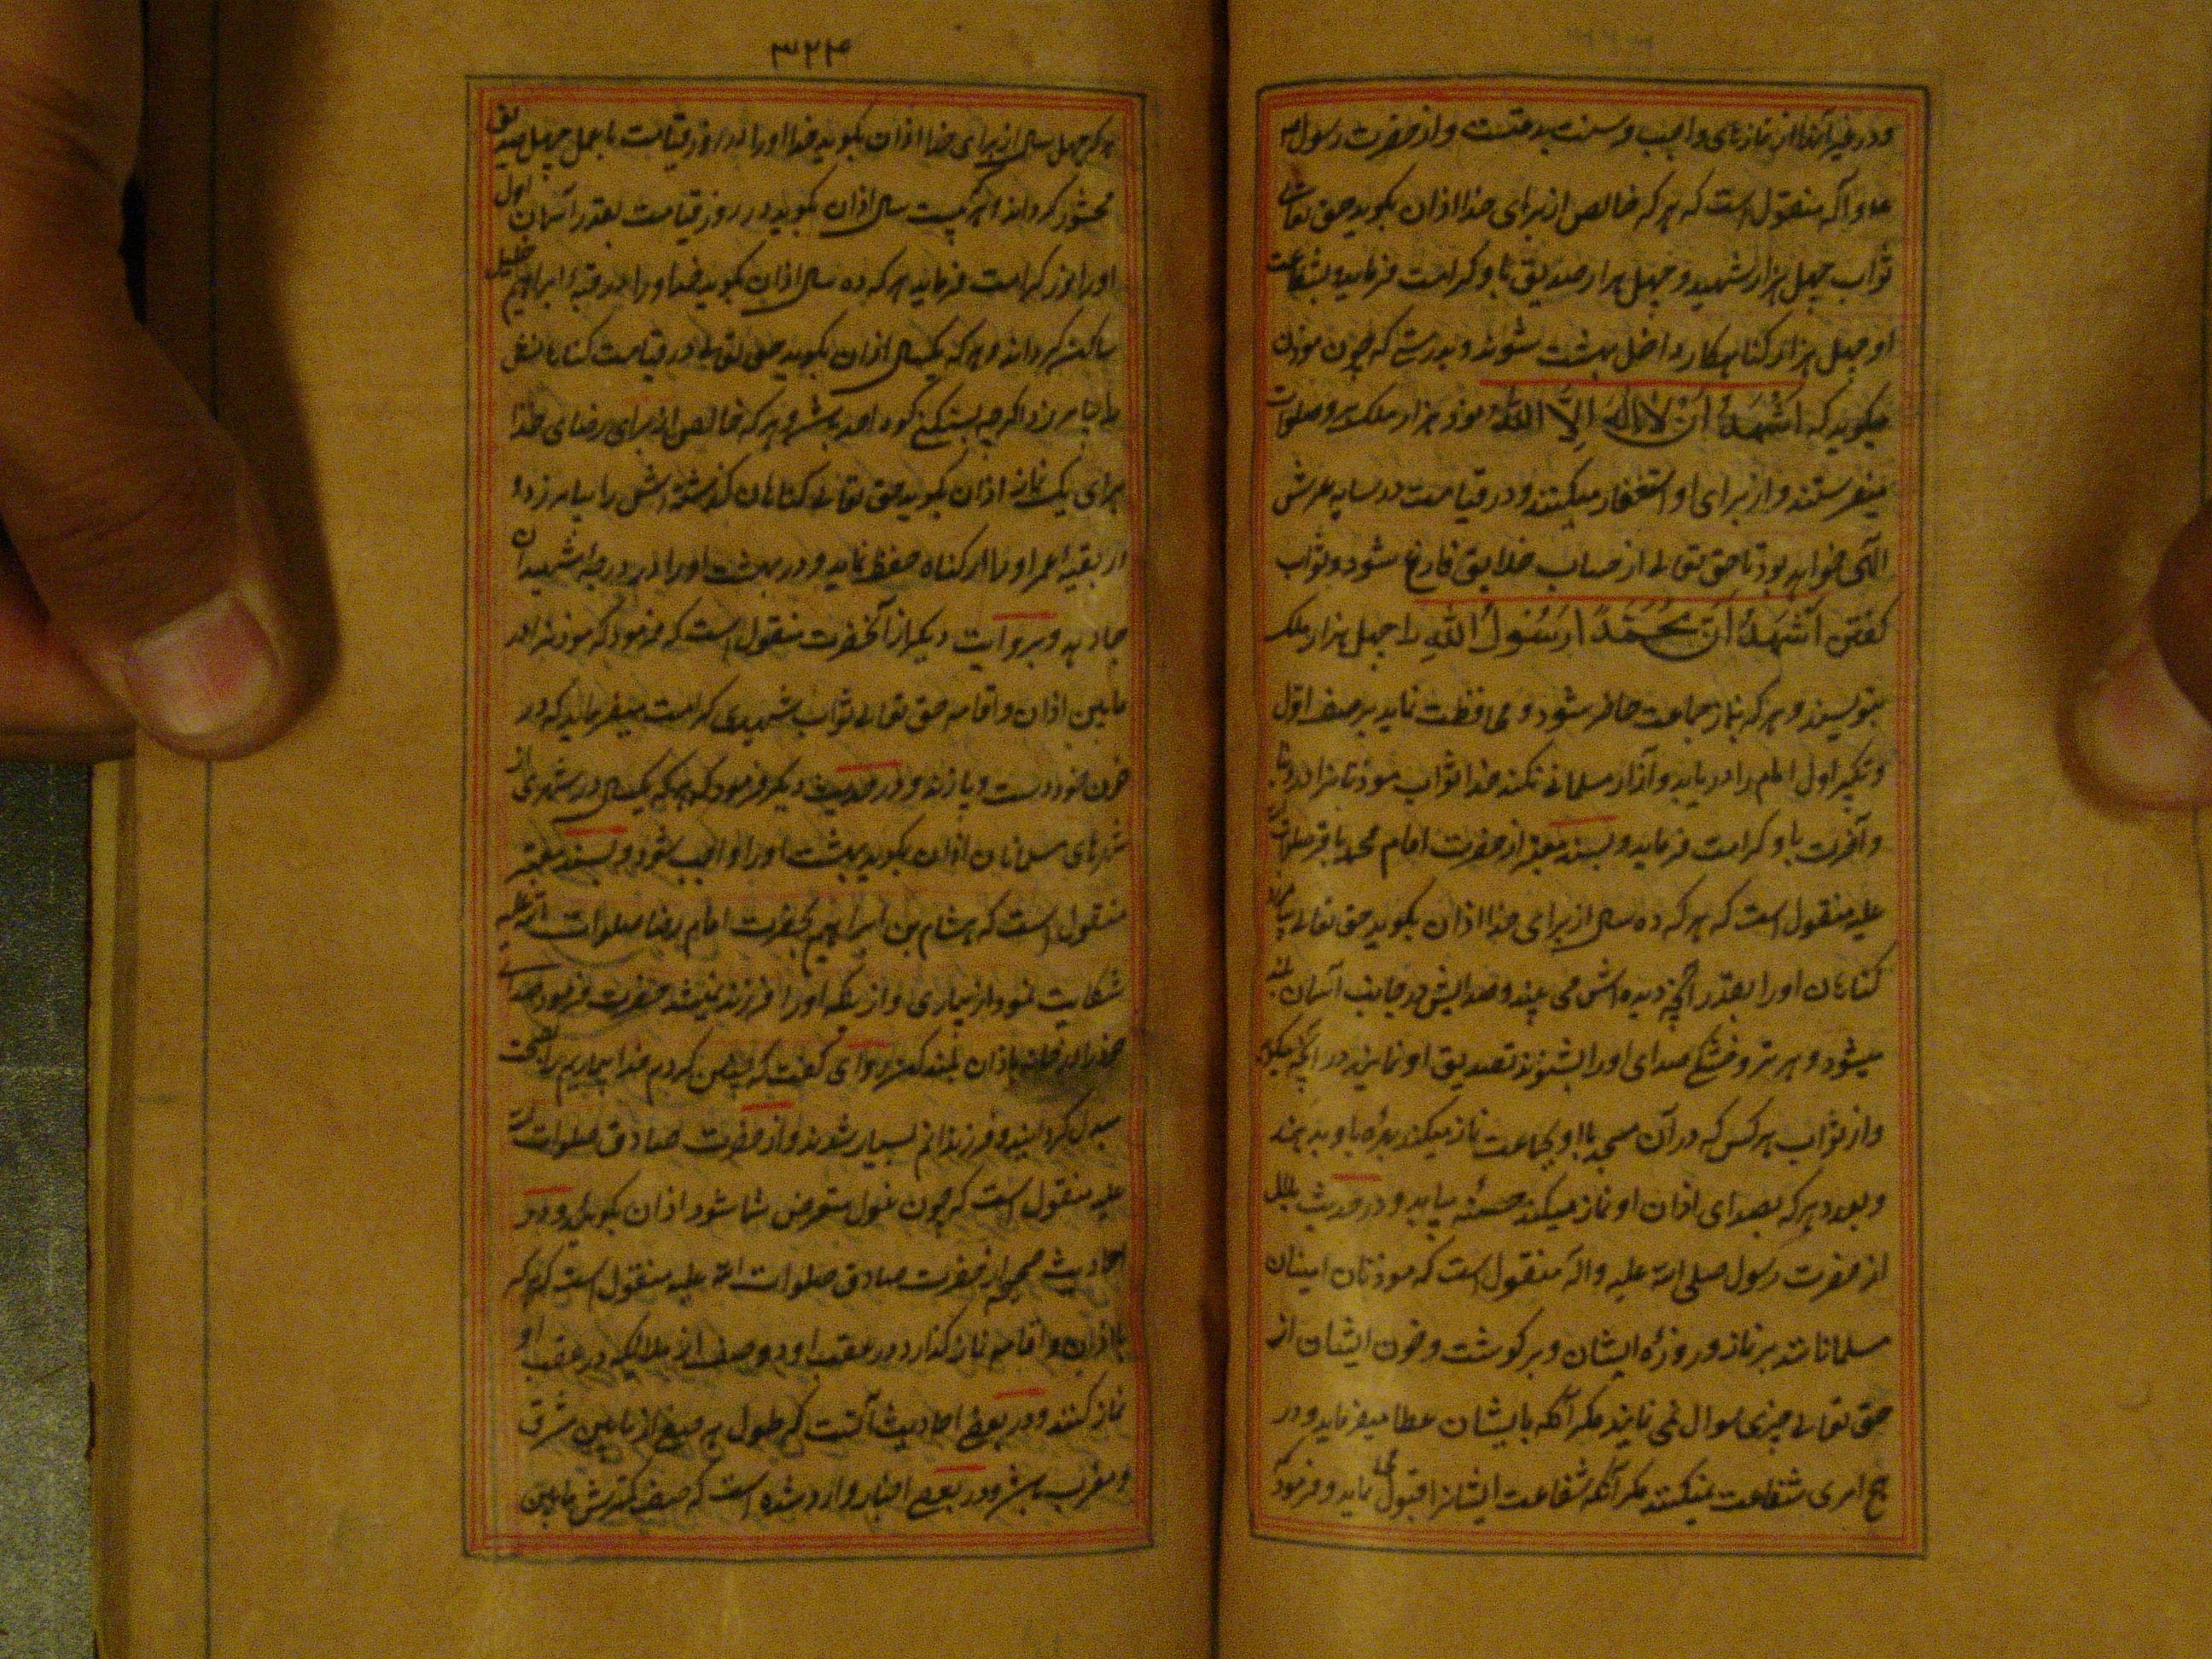 و در غیر آنها از نمازهای واجب و سنت بدعتست و از حضرت رسول ص
علیه و آله منقول است که هر که خالص از برای خدا اذان بگوید حق تعالی
ثواب چهل هزار شهید و چهل هزار صدیق باو کرامت فرماید و بشفاعت
او چهل هزار گناهکار داخل بهشت شوند و بدرستی که چون موذن
میگوید که اَشْهَدُ اَنْ لا اِلهَ اِلاَّ اللهُ نود هزار ملک بر او صلوات
میفرستند و از برای او استغفار میکنند و در قیامت در سایه عرش
الهی خواهد بود تا حق تعالی از حساب خلایق فارغ شود و ثواب
گفتن اَشْهَدُ اَنَّ مُحَمَّداً رَسُولُ اللهِ را چهل هزار ملک
بنویسند و هر که بنماز جماعت حاضر شود و محافظت نماید بر صف اول
و تکبیر اول امام را دریابد و آزار مسلمانی نکند خدا ثواب موذنانرا در دنیا
و آخرت باو کرامت فرماید و بسند معتبر از حضرت امام محمد باقر صلوات
علیه منقول است که هر که ده سال از برای خدا اذان بگوید حق تعالی بیامرزد
گناهان او را بقدر آنچه دیده اش می بیند و صدایش در جانب آسان بلند
میشود و هر تر و خشکی صدای او را بشنوند تصدیق او نمایند در آنچه میگوید
و از ثواب هر کس که در آن مسجد با او بجماعت نماز میکند بهره باو بدهند
و بعدد هر که بصدای اذان او نماز میکند حسنه بیابد و در حدیث بلال
از حضرت رسول صلی الله علیه و آله منقول است که موذنان امینان
مسلمانانند بر نماز و روزه ایشان و بر گوشت و خون ایشان از
حق تعالی چیزی سوال نمی نمایند مگر آنکه بایشان عطا میفرماید و در
هیچ امری شفاعت نمیکنند مگر آنکه شفاعت ایشانرا قبول می نماید و فرمود که
۳۲۴
هر که چهل سال از برای خدا اذان بگوید خدا او را در روز قیامت با عمل چهل صدیق
محشور گرداند و هر که بیست سال اذان بگوید در روز قیامت بقدر آسمان اول
او را نور کرامت فرماید هر که ده سال اذان بگوید خدا او را در قبه ابراهیم خلیل
ساکن گرداند و هر که یکسال اذان بگوید حق تعالی در قیامت گناهانش
را بیامرزد اگر چه بسنگینی کوه احد باشد و هر که خالص از برای رضای خدا
برای یک نماز اذان بگوید حق تعالی گناهان گذشته اش را بیامرزد و
در بقیه عمر او را از گناه حفظ نماید و در بهشت او را در درجه شهیدان
جا دهد و بروایت دیگر از آنحضرت منقول است که فرمود که موذنرا در
مابین اذان و اقامه حق تعالی ثواب شهیدی کرامت میفرماید که در
خون خود دست و پا زند و در حدیث دیگر فرمود که هر که یکسال در شهری از
شهرهای مسلمانان اذان بگوید بهشت او را واجب شود و بسند معتبر
منقول است که هشام بن ابراهیم بحضرت امام رضا صلوات الله علیه
شکایت نمود از بیماری و از آنکه او را فرزند نمیشد حضرت فرمود صدای
خود را در خانه باذان بلند کن راوی گفت که چنین کردم خدا بیماریم را بصحت
مبدل گردانید و فرزندانم بسیار شوند و از حضرت صادق صلوات الله
علیه منقول است که چون غول متعرض شما شود اذان بگوئید و در
احادیث صحیحه از حضرت صادق صلوات الله علیه منقول است که هر که
با اذان و اقامه نماز گذارد در عقب او دو صف از ملائکه در عقب او
نماز کنند و در بعضی احادیث آنست که طول هر صفی از مابین مشرق
و مغرب باشد و در بعضی اخبار وارد شده است که صف کمترش مابین